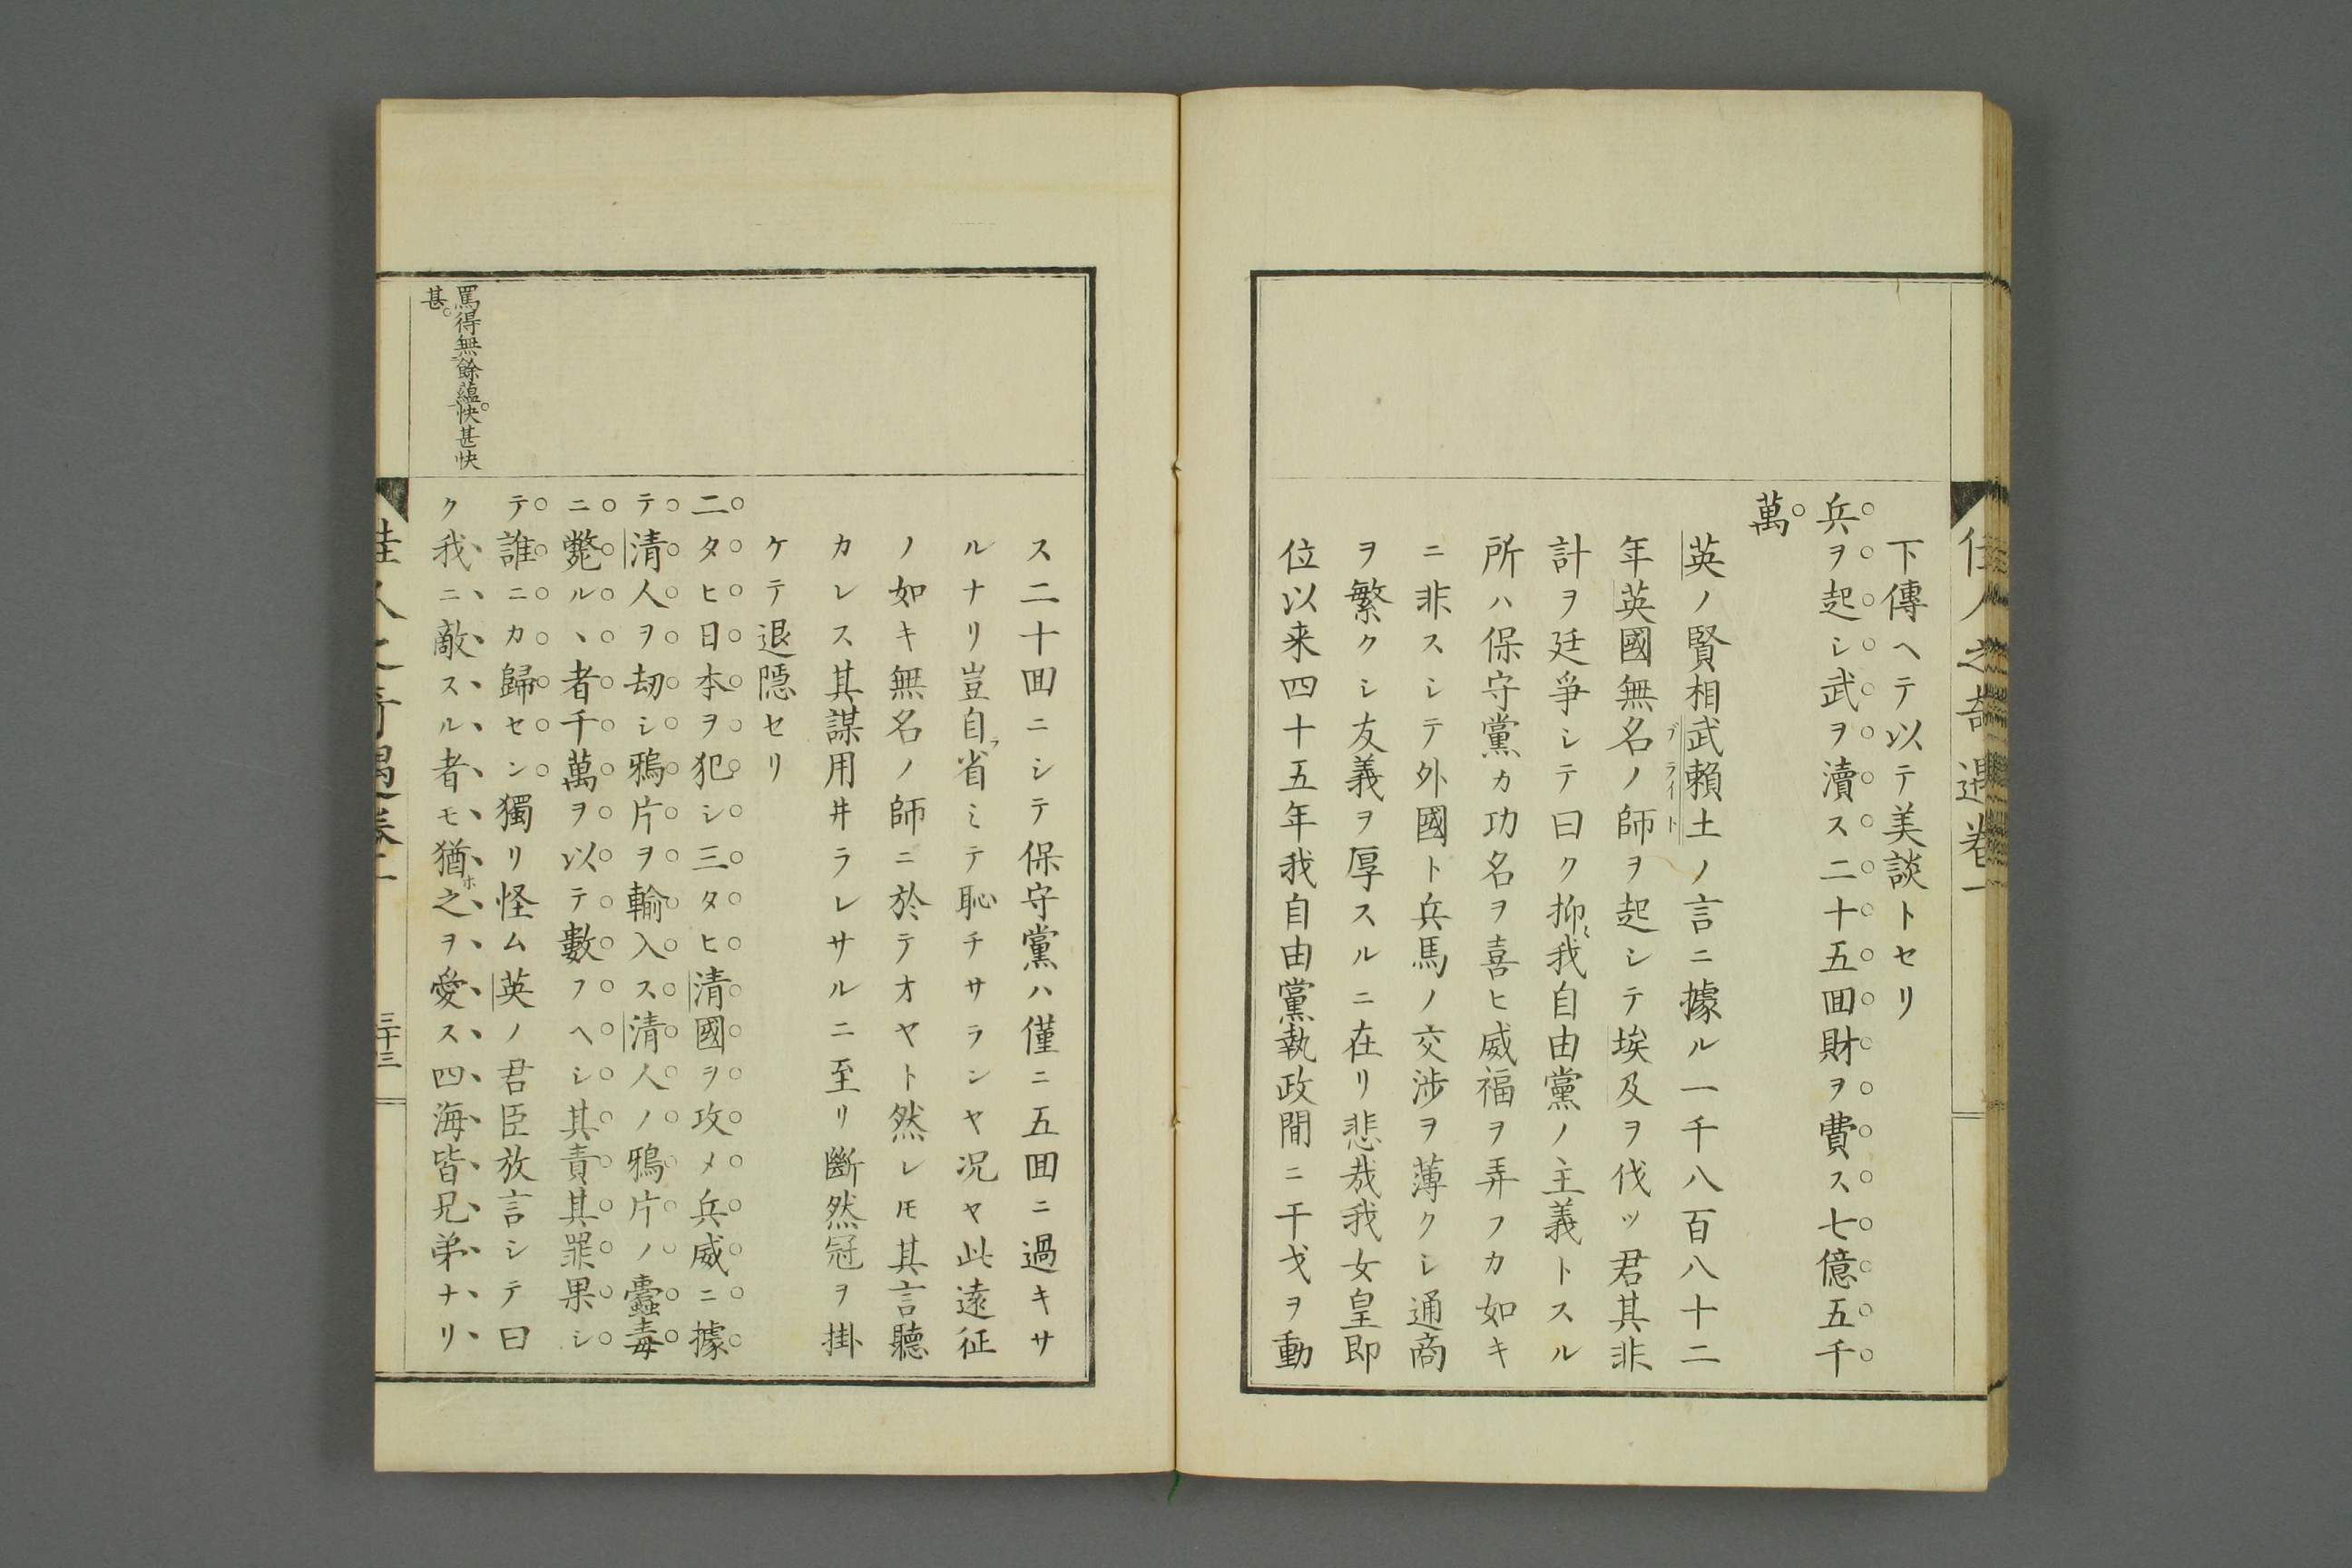 下傳ヘテ以テ美談トセリ
兵ヲ起シ武ヲ瀆ス二十五囬財ヲ費ス七億五千
萬
英ノ賢相武賴土ノ言ニ據ル一千八百八十二
ブライト
年英國無名ノ師ヲ起シテ埃及ヲ伐ツ君其非
計ヲ廷爭シテ曰ク抑〻我自由黨ノ主義トスル
所ハ保守黨カ功名ヲ喜ヒ威福ヲ弄フカ如キ
ニ非スシテ外國ト兵馬ノ交渉ヲ薄クシ通商
ヲ繁クシ友義ヲ厚スルニ在リ悲哉我女皇即
位以来四十五年我自由黨執政間ニ干戈ヲ動
佳人之奇遇卷二
ス二十囬ニシテ保守黨ハ僅ニ五囬ニ過キサ
ルナリ豈自ラ省ミテ恥チサランヤ况ヤ此遠征
ノ如キ無名ノ師ニ於テオヤト然レ𪜈其言聽
カレス其謀用井ラレサルニ至リ斷然冠ヲ掛
ケテ退隱セリ
二タヒ日本ヲ犯シ三タヒ清國ヲ攻メ兵威ニ據
テ清人ヲ劫シ鴉片ヲ輸入ス清人ノ鴉片ノ蠧毒
ニ斃ルヽ者千萬ヲ以テ數フヘシ其責其罪果シ
テ誰ニカ歸セン獨リ怪ム英ノ君臣放言シテ曰
ク我ニ敵スル者モ猶ホ之ヲ愛ス四海皆兄弟ナリ
罵得無餘蘊快甚快
甚
佳人之奇遇卷二
三十三